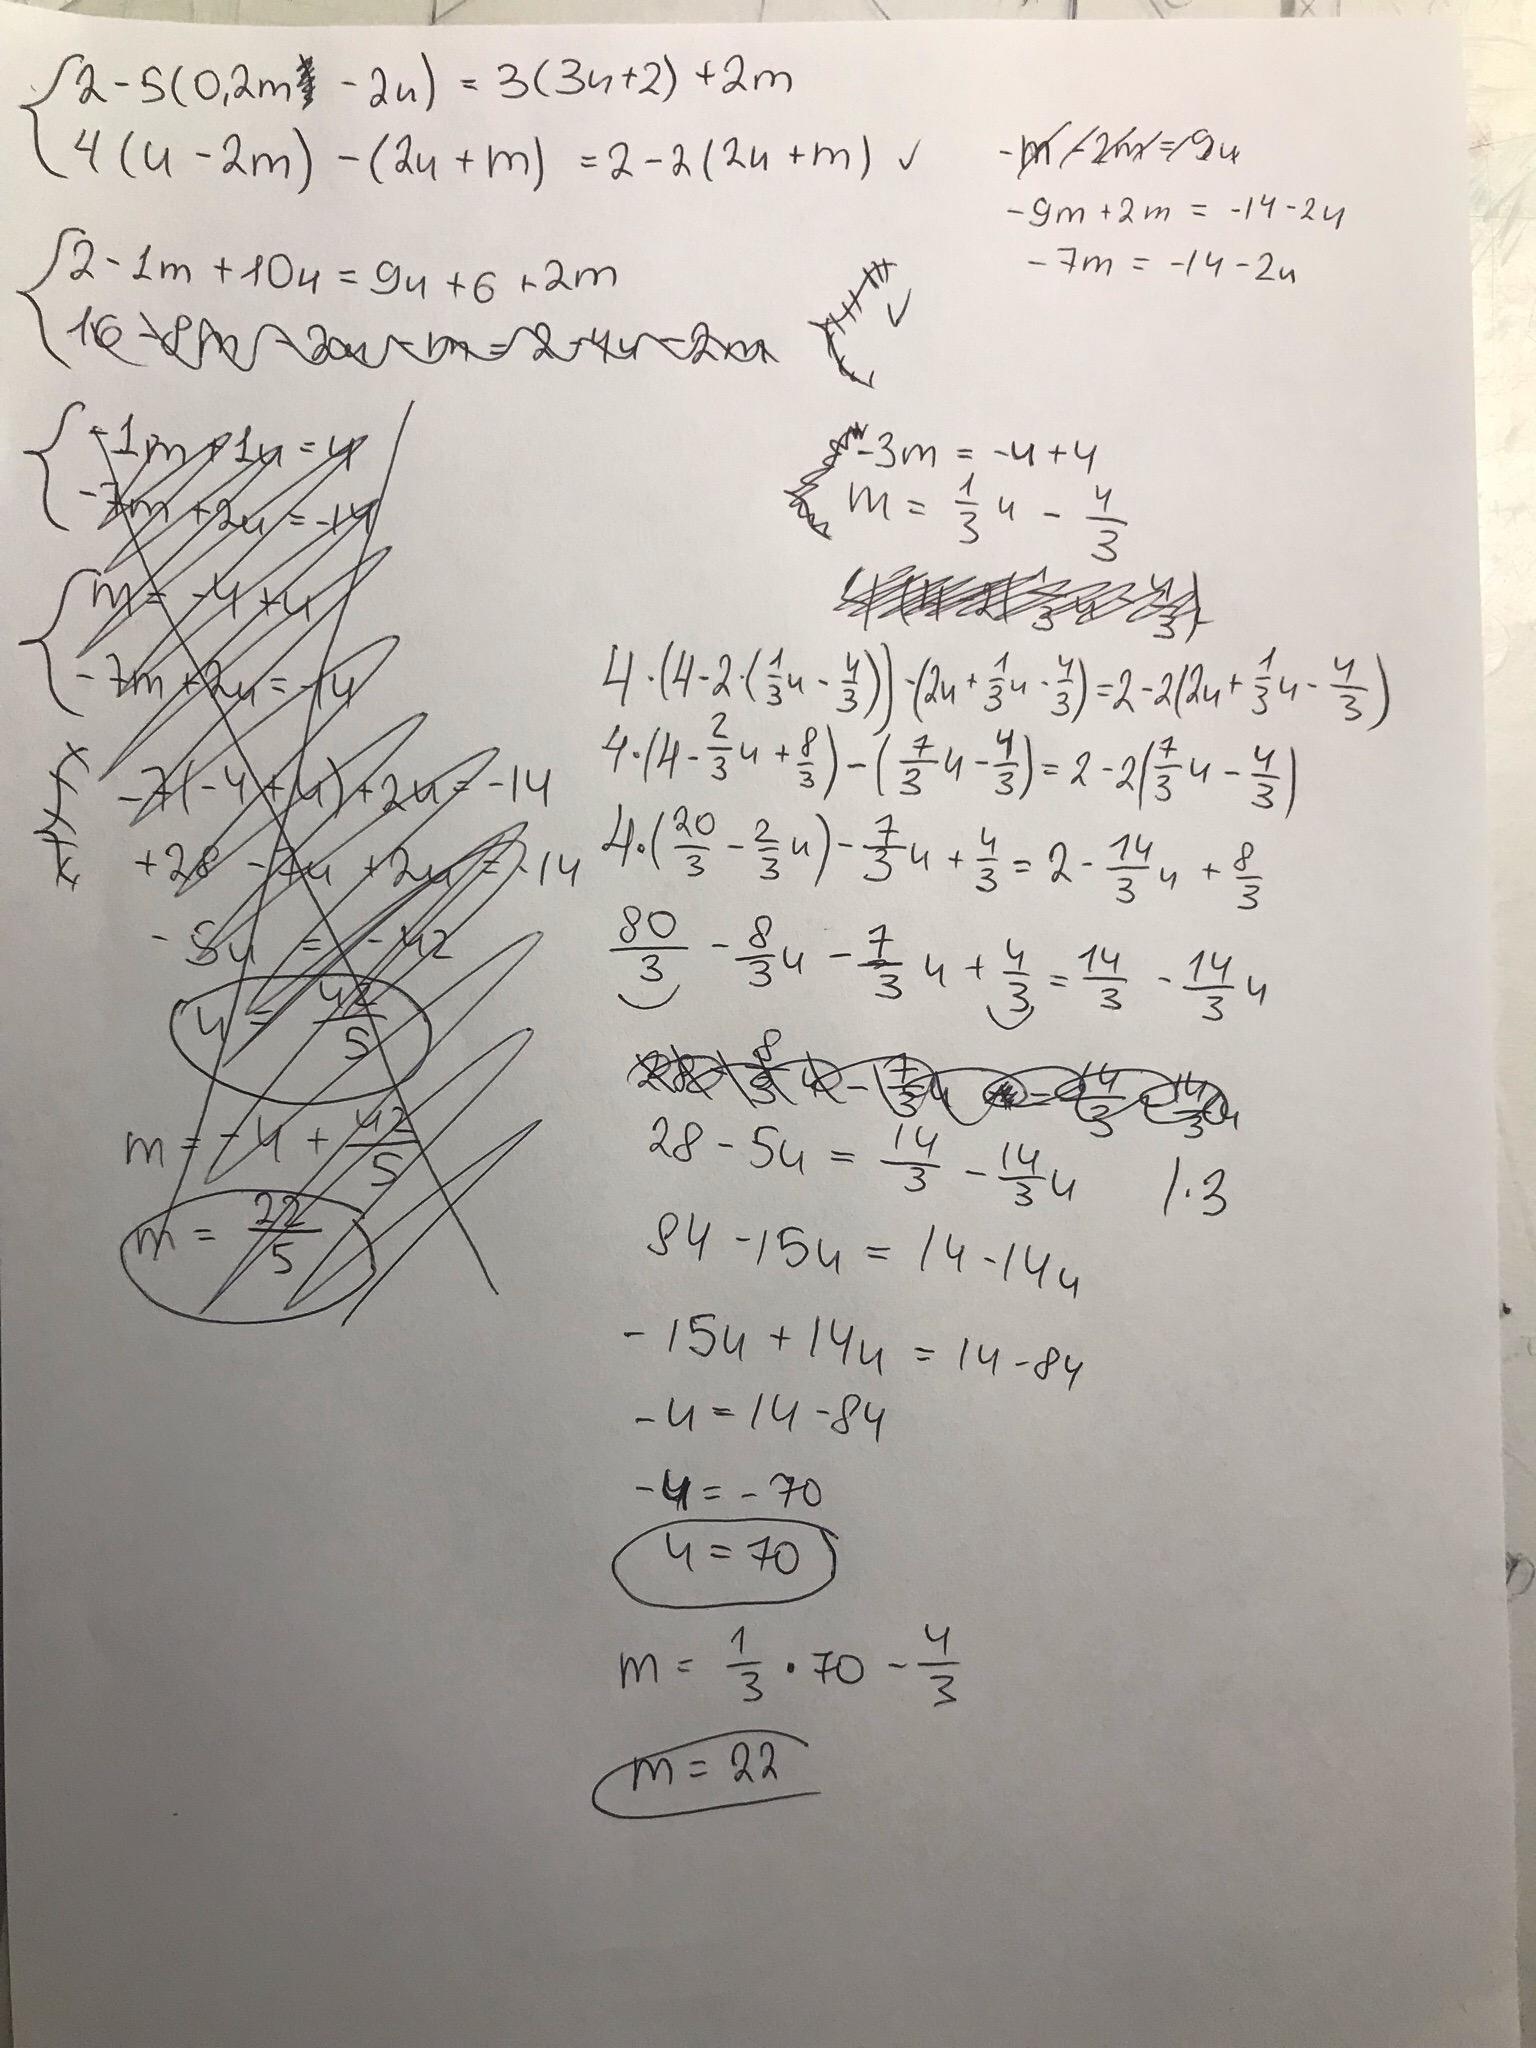 2-5(0,2m -2u) = 3(3u+2)+2m
4(4-2m) -(2u+m) =2-2(2u+m) ✓
-m-2m=9u
-9m+2m = -14-2u
-7m = -14-2u
2-1m+10u=9u+6+2m
16-8m-2u-m=2-4u-2m
✓
-1m+1u=4
-7m+2u=-14
m=-4+u
-7m+2u=-14
-7(-4+u)+2u=-14
+28-7u+2u=-14
-5u = -42
u = 42/5
m=-4+42/5
m = 22/5
-3m = -u+4
m = 1/3 u - 4/3
4·(4-2·(1/3u-4/3))-(2u+1/3u-4/3)=2-2(2u+1/3u-4/3)
4·(4-2/3u+8/3)-(7/3u-4/3)=2-2(7/3u-4/3)
4·(20/3-2/3u)-7/3u+4/3=2-14/3u+8/3
80/3-8/3u-7/3u+4/3=14/3-14/3u
28-5u=14/3-14/3u /·3
84-15u=14-14u
-15u+14u=14-84
-u=14-84
-u=-70
u=70
m=1/3·70-4/3
m=22